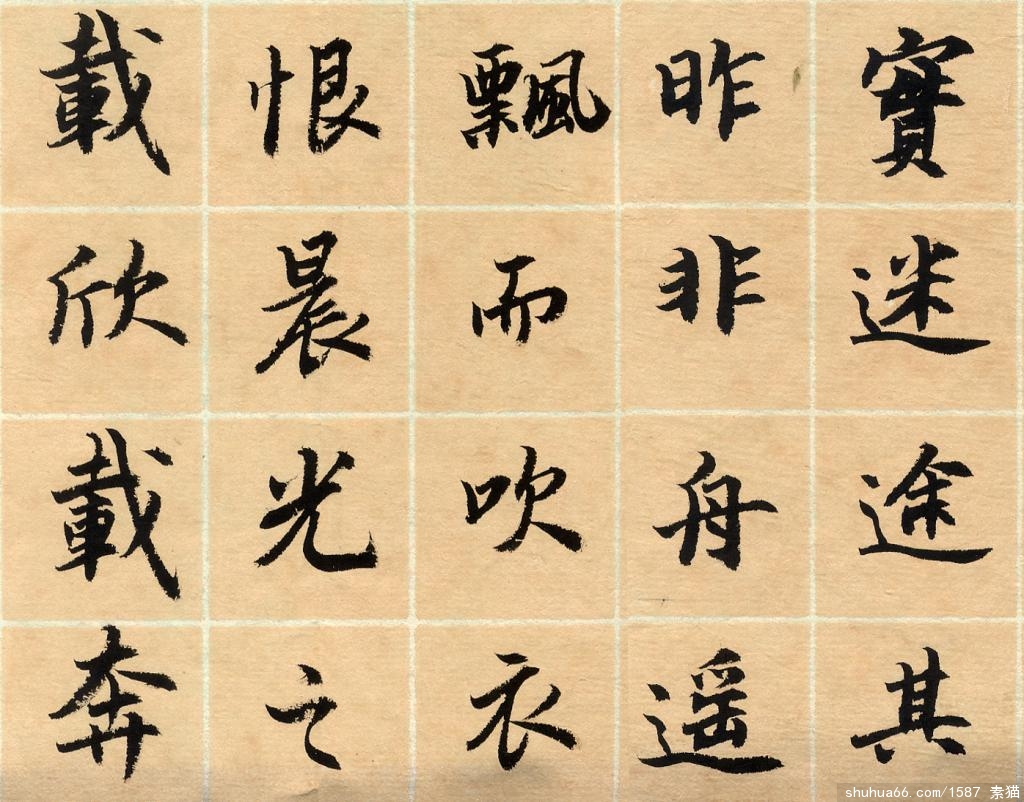 實迷途其
昨非舟遥
飄而吹衣
恨晨光之
載欣載奔
shuhua66.com/1587 素猫